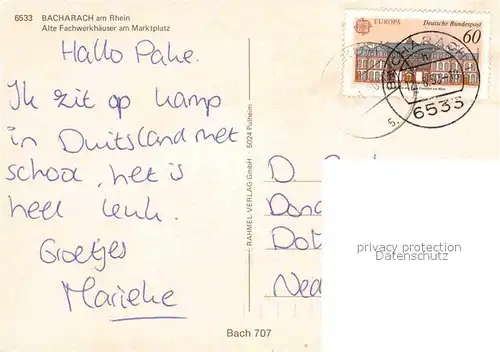 6533 BACHARACH am Rhein
Alte Fachwerkhäuser am Marktplatz
EUROPA Deutsche Bundespost
60
BACHARACH
6533
Hallo Pake.
Ik zit op kamp
in Duitsland met
school, het is
heel leuk.
Groetjes
Marieke
RAHMEL VERLAG GmbH 5024 Pulheim
D.
privacy protection
Datenschutz
Bach 707